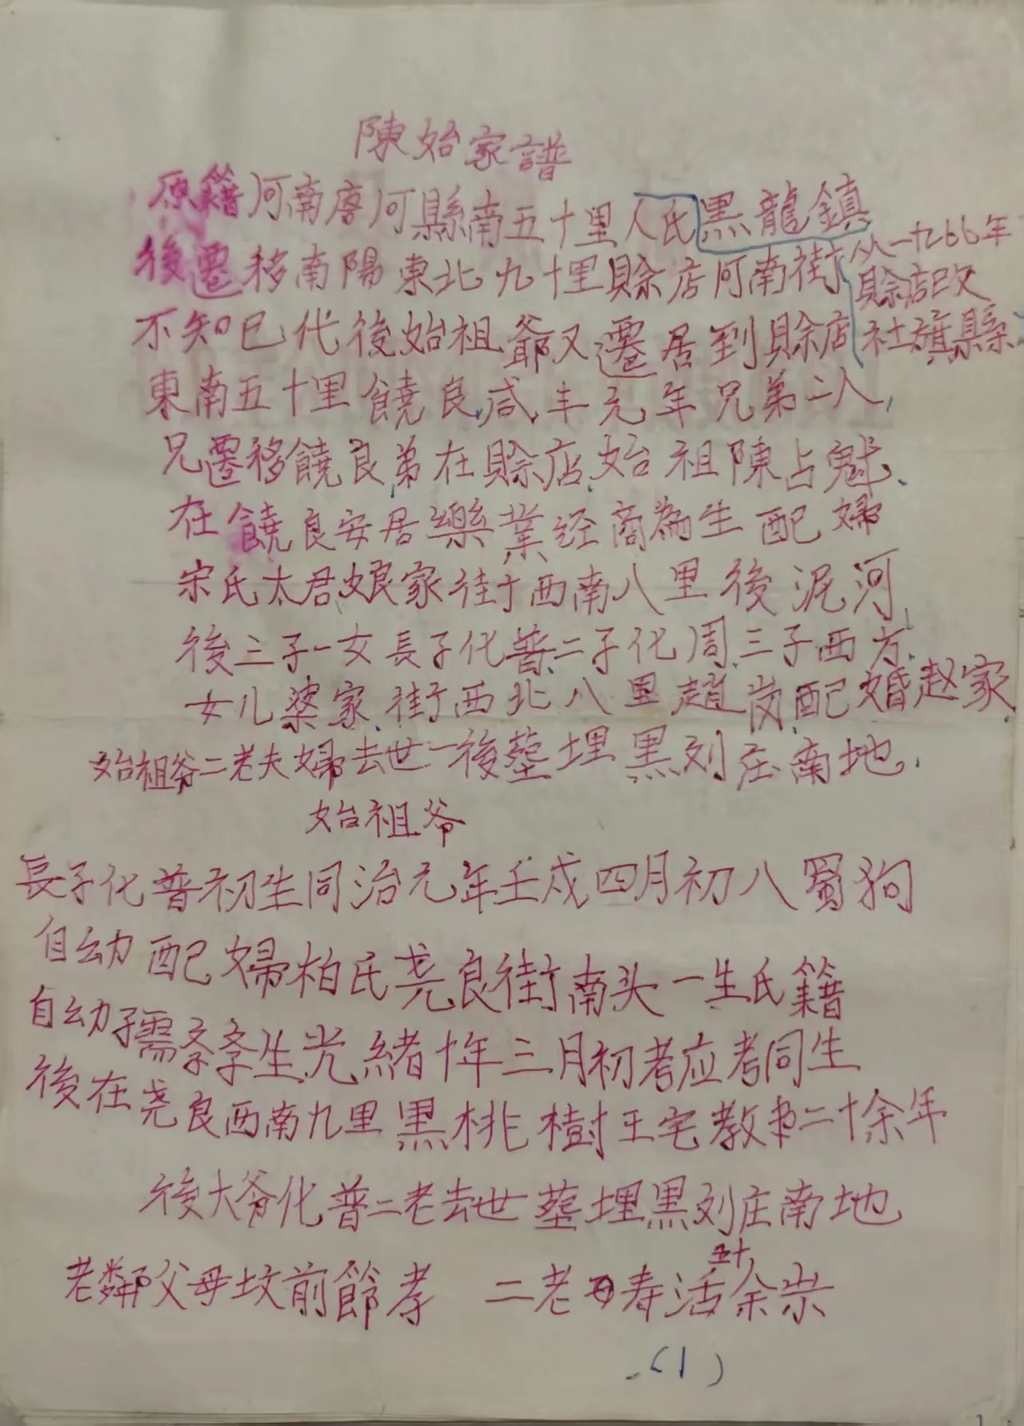 陳始家譜
原籍河南唐河縣南五十里人氏黑龍鎮
後遷移南陽東北九十里賒店河南街
从一九六六年
賒店改
社旗縣
不知已代後始祖爺又遷居到賒店
東南五十里饒良咸丰元年兄弟二人
兄遷移饒良弟在賒店始祖陳占魁
在饒良安居樂業经商為生配婦
宋氏太君娘家街西南八里後泥河
後三子一女長子化普二子化周三子西方
女儿婆家街西北八里趙岗配婚赵家
始祖爷二老夫婦去世一後墓埋黑刘庄南地
始祖爷
長子化普初生同治元年壬戌四月初八蜀狗
自幼配婦柏氏尧良街南头一生氏籍
自幼孺孝孝生光緒十年三月初考应考同生
後在尧良西南九里黑桃樹王宅教书二十余年
後大爷化普二老去世墓埋黑刘庄南地
老鄰父母坟前節孝 二老寿活五十余岁
(1)